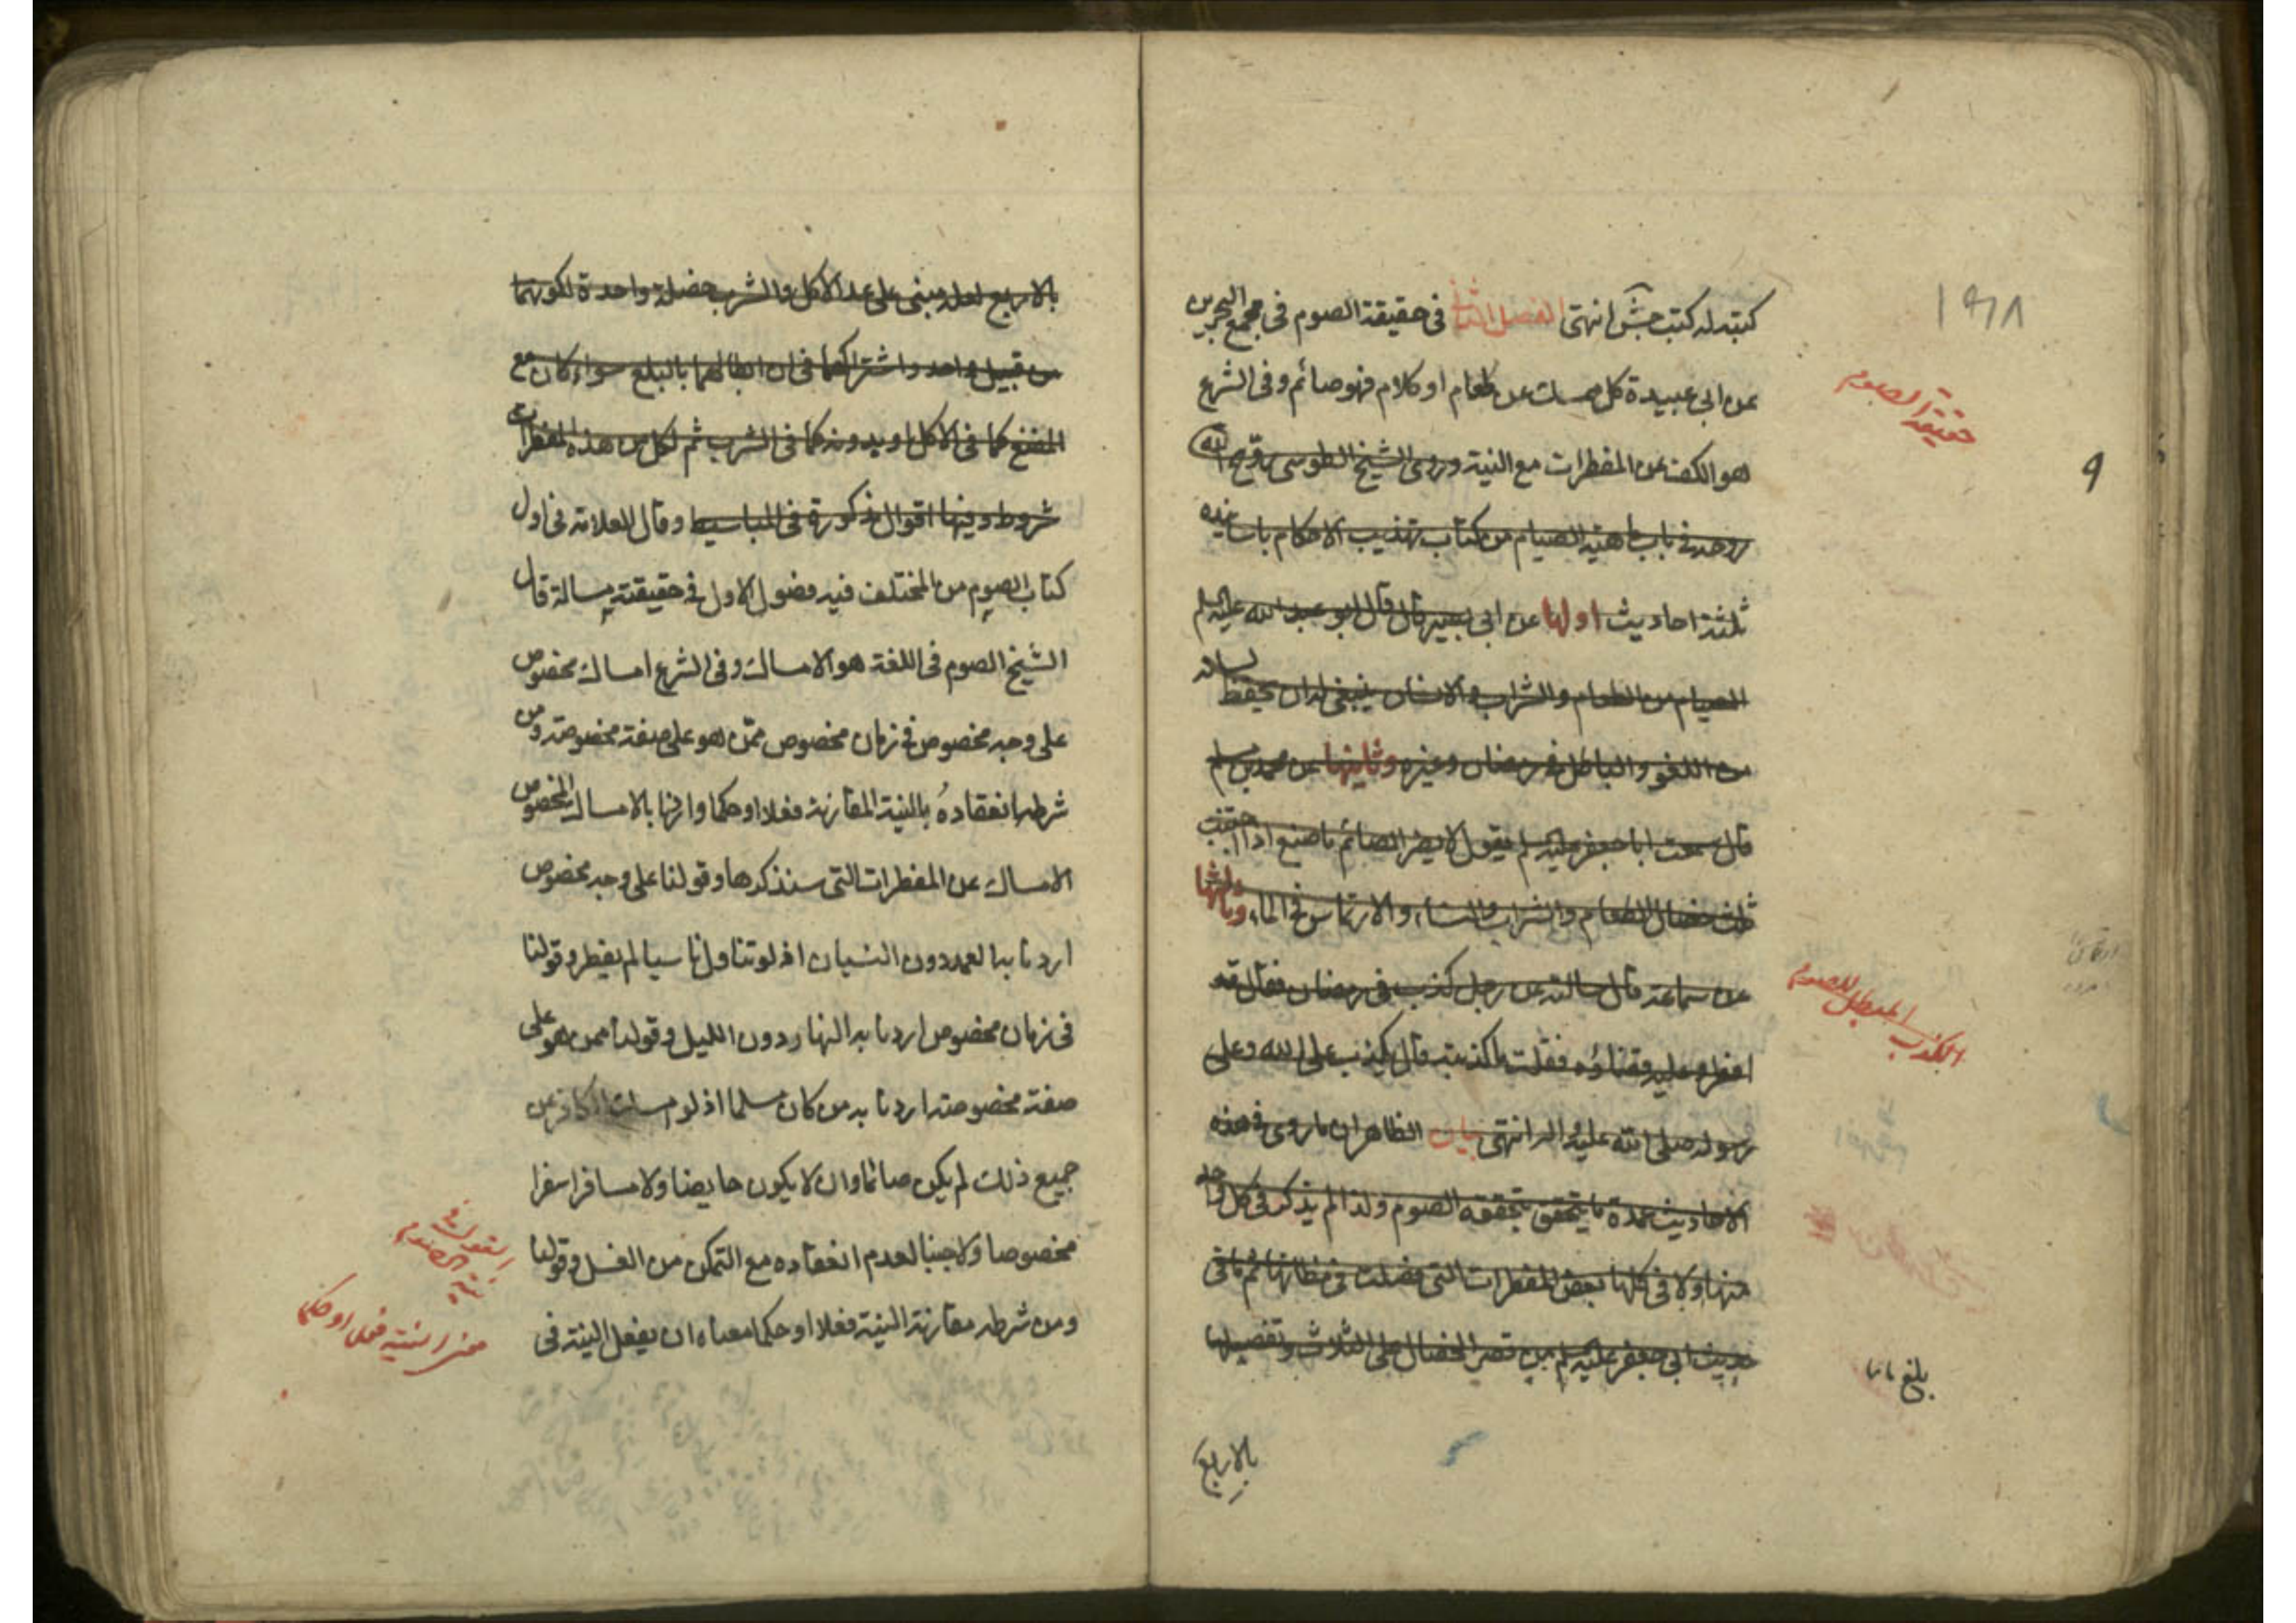 كتبته له كتب جش انتهى الفصل الثاني في حقيقة الصوم في مجمع البحرين
عن ابي عبيدة كل ممسك عن طعام او كلام فهو صائم وفي الشرع
هو الكف عن المفطرات مع النية وروى الشيخ الطوسي روّح الله
روحه في باب ماهية الصيام من كتاب تهذيب الاحكام باسانيده
ثلثة احاديث اولها عن ابي بصير قال قال ابو عبد الله عليه السلم
الصيام من الطعام والشراب والانسان ينبغي له ان يحفظ لسانه
من اللغو والباطل في رمضان وغيره وثانيها عن محمد بن مسلم
قال سمعت ابا جعفر عليه السلم يقول لا يضر الصائم ما صنع اذا اجتنب
ثلث خصال الطعام والشراب والنساء والارتماس في الماء وثالثها
عن سماعة قال سالته عن رجل كذب في رمضان فقال قد
افطر وعليه قضاؤه فقلت ما كذبته قال يكذب على الله وعلى
رسوله صلى الله عليه واله انتهى بيان الظاهر ان ما روى في هذه
الاحاديث عمدة ما يتحقق بتحققه الصوم ولذا لم يذكر في كل واحد
منها ولا في كلها بعض المفطرات التي فصلت في مظانها ثم ما في
حديث ابي جعفر عليه السلم من قصر الخصال على الثلاث وتفصيلها
بالاربع
١٩٨
حقيقة الصوم
9
الكذب المبطل للصوم
بلغ
بالاربع لعله مبنى على عد الاكل والشرب خصلة واحدة لكونهما
من قبيل واحد واشتراكهما في ان ابطالهما بالبلع سواء كان مع
المضغ كما في الاكل او بدونه كما في الشرب ثم لكل من هذه المفطرات
شروط وفيها اقوال مذكورة في المباسيط وقال العلامة في اول
كتاب الصوم من المختلف فيه فصول الاول في حقيقته مسالة قال
الشيخ الصوم في اللغة هو الامساك وفي الشرع امساك مخصوص
على وجه مخصوص في زمان مخصوص ممن هو على صفة مخصوصة ومن
شرط انعقاده بالنية المقارنة فعلا او حكما وارنا بالامساك المخصوص
الامساك عن المفطرات التي سنذكرها وقولنا على وجه مخصوص
اردنا به العمد دون النسيان اذ لو تناول ناسيا لم يفطر وقولنا
في زمان مخصوص اردنا به النهار دون الليل وقولنا ممن هو على
صفة مخصوصة اردنا به من كان مسلما اذ لو امسك الكافر عن
جميع ذلك لم يكن صائما وان لا يكون حايضا ولا مسافرا سفرا
مخصوصا ولا جنبا لعدم انعقاده مع التمكن من الغسل وقولنا
ومن شرطه مقارنة النية فعلا او حكما معناه ان يفعل النية في
القول في نية الصوم
معنى النية فعلا او حكما